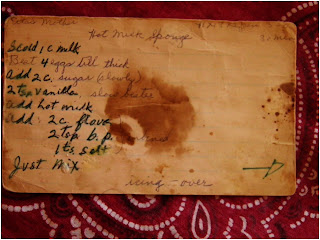 Mother
Hot Milk Sponge
Scald 1 C milk
Beat 4 eggs till thick
Add 2 C. sugar (slowly)
2 tsp vanilla
add hot milk
Add: 2 C flour
2 tsp b.p.
1 ts salt
Just Mix
icing - over